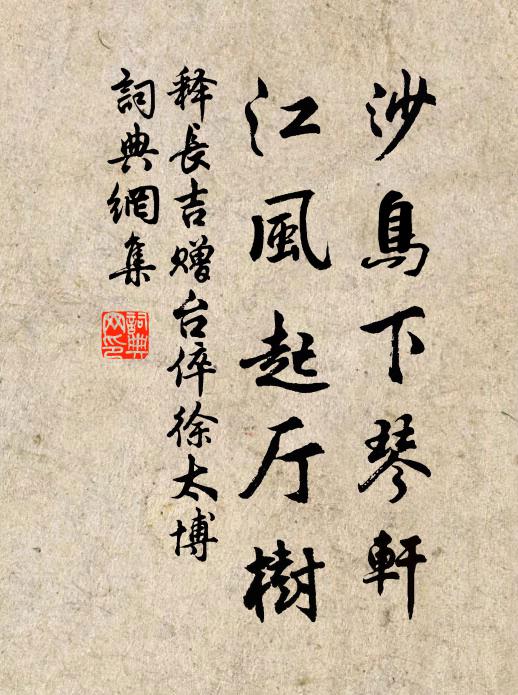 沙鳥下琴軒
江風起厅樹
释長吉赠台倅徐太博
詞典網集
詞典
网印